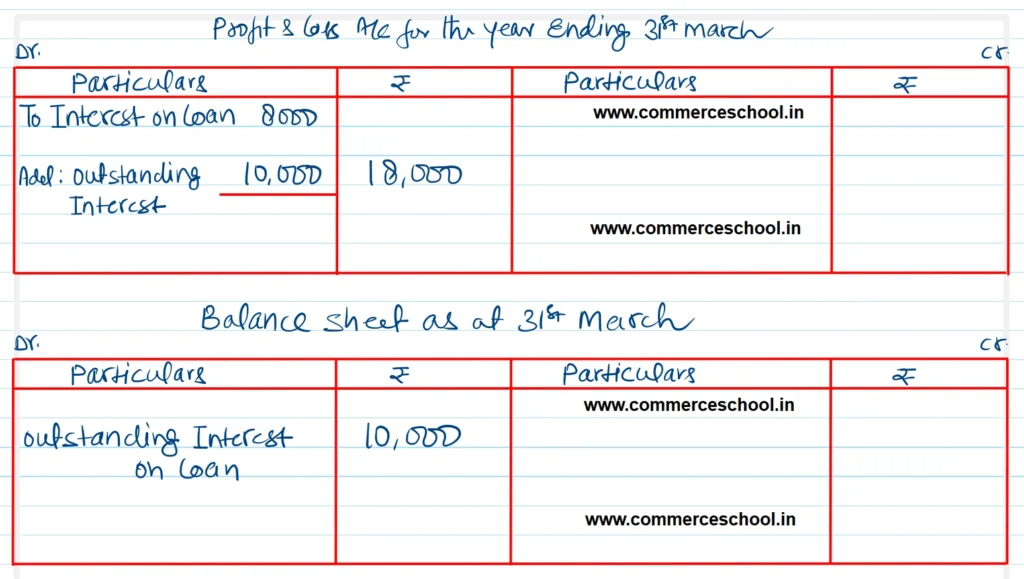 Profit & Loss A/c for the year Ending 31st march
Dr. Cr.
Particulars ₹ Particulars ₹
To Interest on Loan 8000 www.commerceschool.in
Add: outstanding 10,000 18,000
Interest
www.commerceschool.in
Balance sheet as at 31st March
Dr. Cr.
Particulars ₹ Particulars ₹
www.commerceschool.in
outstanding Interest 10,000
on Loan
www.commerceschool.in